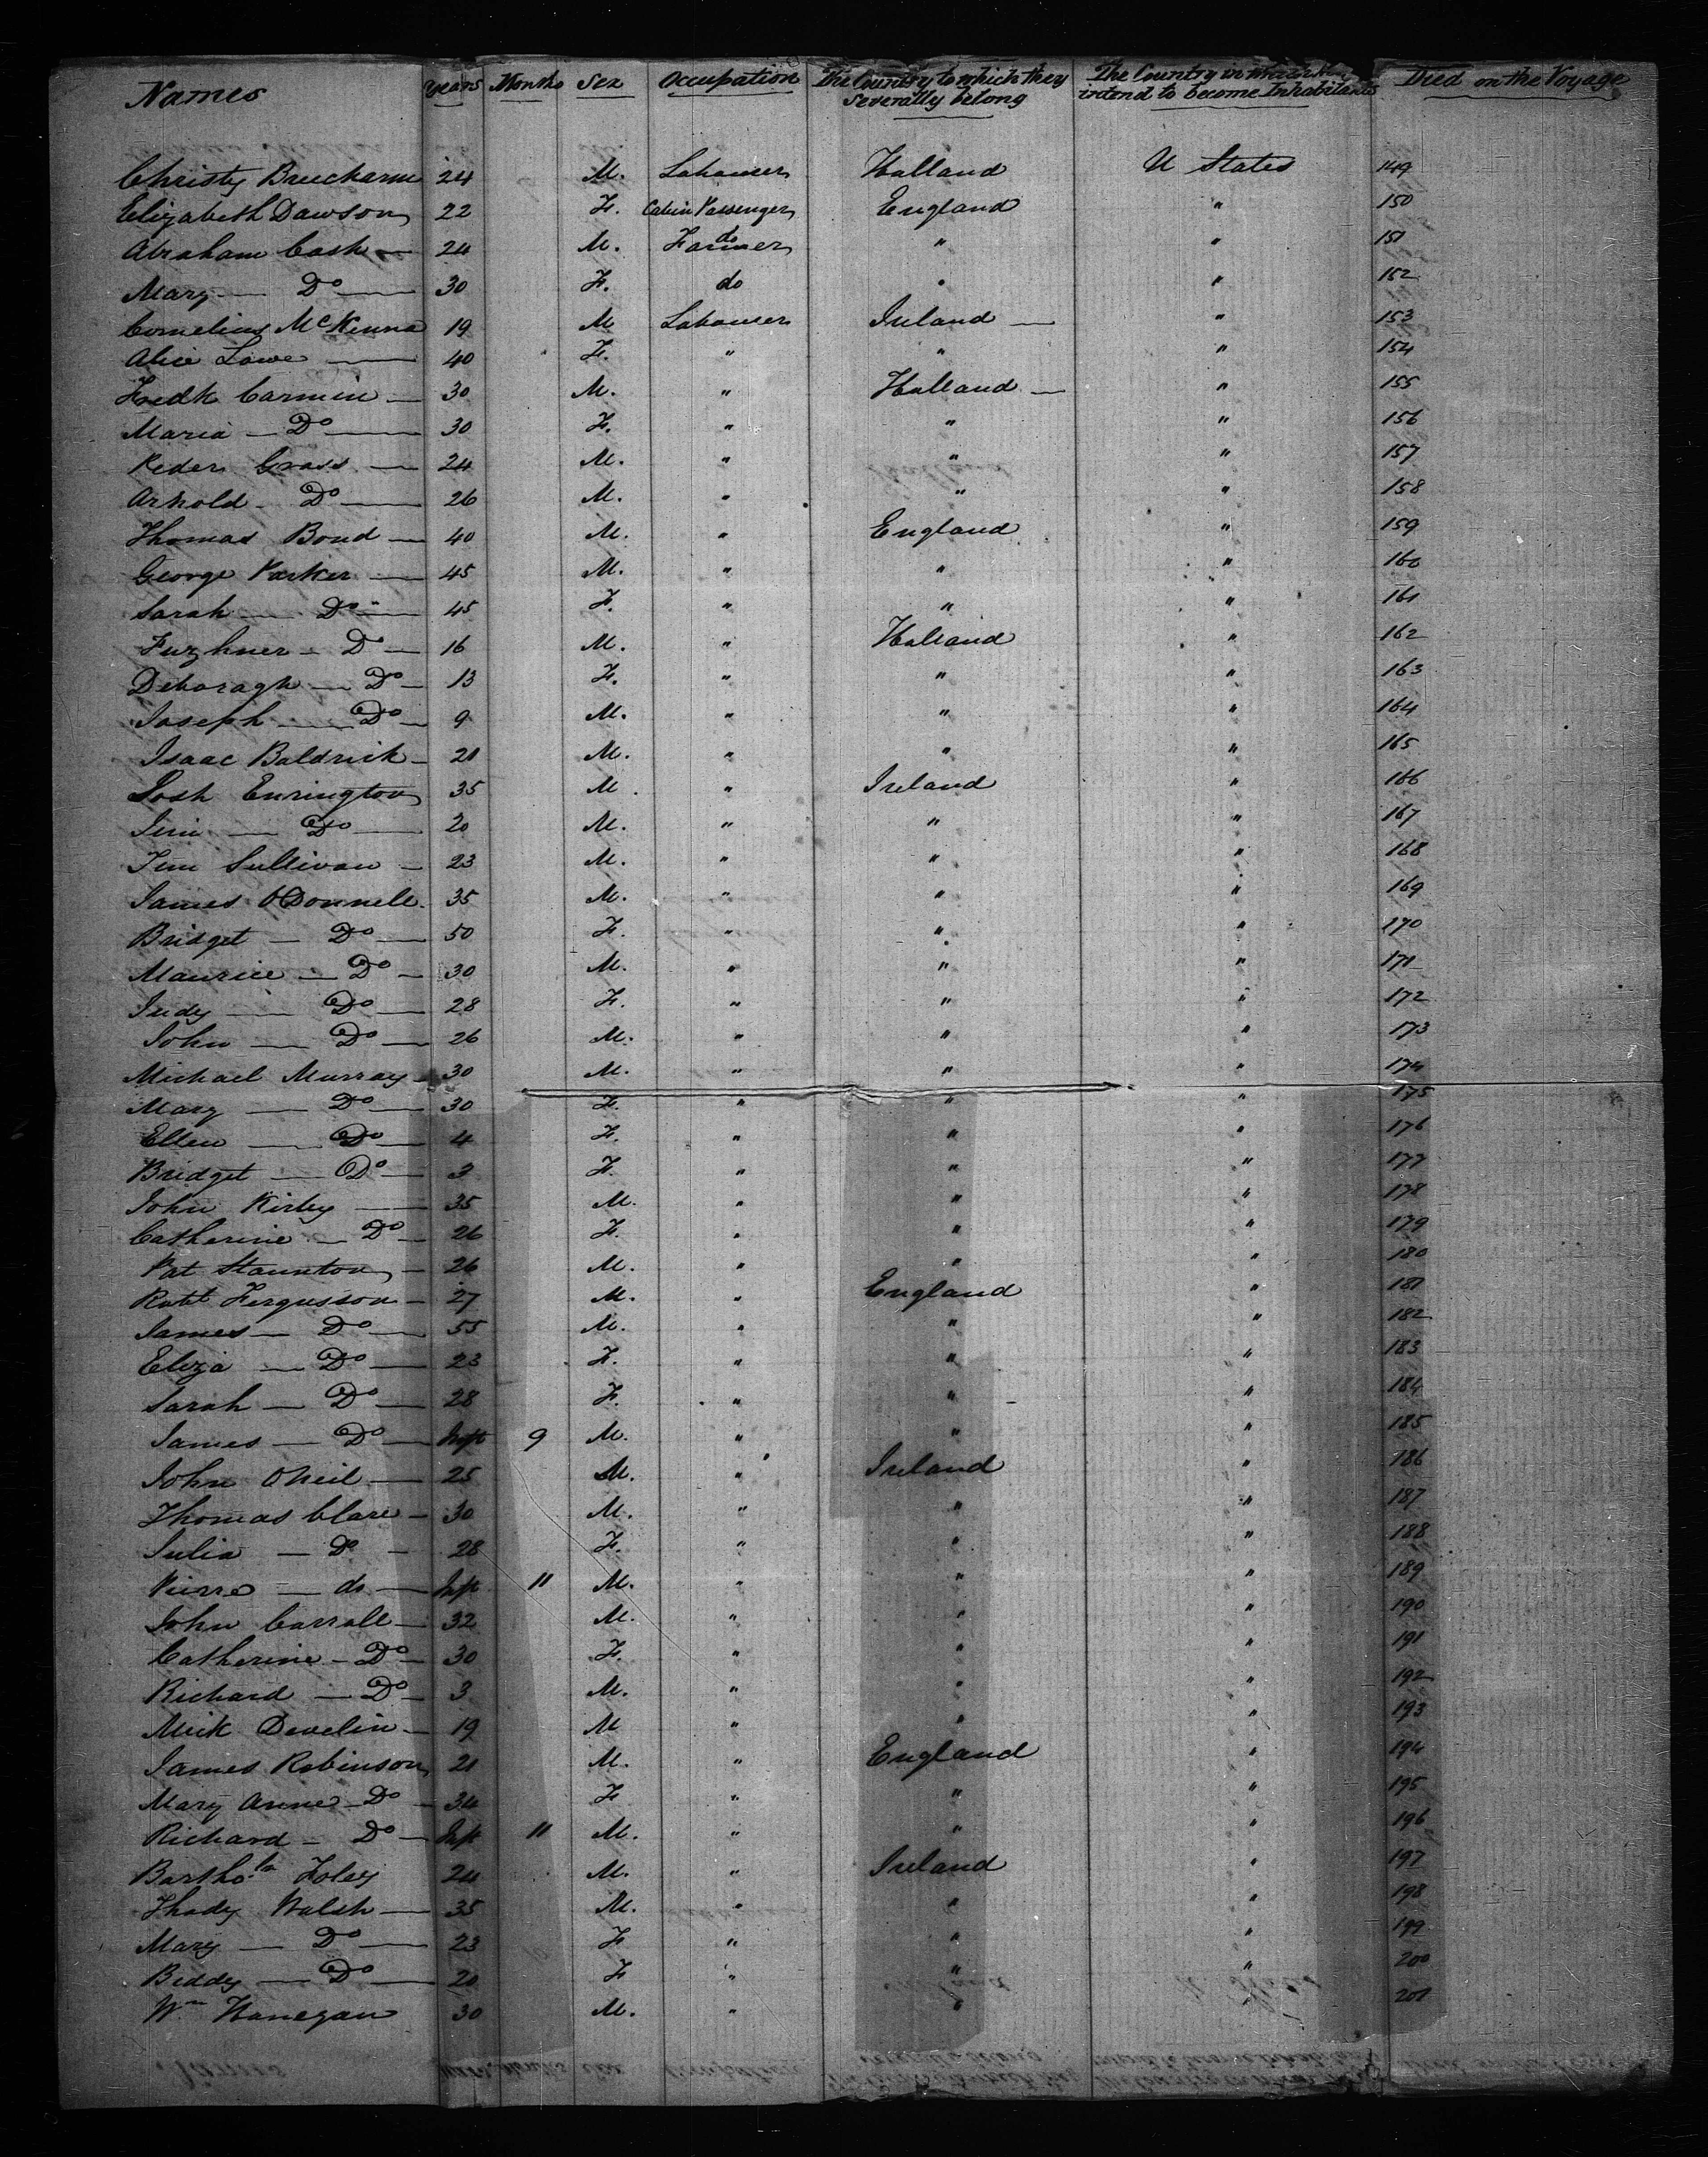 Names Years Months Sex Occupation The Country to which they severally belong The Country in which they intend to become Inhabitants Died on the Voyage
Christy 24 M. Labourer Holland U States 149
Elizabeth Dawson 22 F. Cabin Passenger England " 150
Abraham Cash — 24 M. Farmer do " " 151
Mary — Do — 30 F. do " " 152
Cornelius McKenna 19 M Labourer Ireland — " 153
Alice Lowe — 40 F. " " " 154
Fredk Carmin — 30 M. " Holland — " 155
Maria — Do — 30 F. " " " 156
Peder Grass — 24 M. " " " 157
Arnold — Do — 26 M. " " " 158
Thomas Bond — 40 M. " England " 159
George Parker — 45 M. " " " 160
Sarah — Do — 45 F. " " " 161
— Do — 16 M. " Holland " 162
Deboragh — Do — 13 F. " " " 163
Joseph — Do — 9 M. " " " 164
Isaac Baldrick — 21 M. " " " 165
Josh Enrington 35 M. " Ireland " 166
Jim — Do — 20 M. " " " 167
Jim Sullivan — 23 M. " " " 168
James ODonnell. 35 M. " " " 169
Bridget — Do — 50 F. " " " 170
Maurice — Do — 30 M. " " " 171
Judy — Do — 28 F. " " " 172
John — Do — 26 M. " " " 173
Michael Murray 30 M. " " " 174
Mary — Do — 30 F. " " " 175
Ellen — Do — 4 F. " " " 176
Bridget — Do — 3 F. " " " 177
John Kirby — 35 M. " " " 178
Catherine — Do — 26 F. " " " 179
Pat Staunton — 26 M. " " " 180
Robt Fergusson — 27 M. " England " 181
James — Do — 55 M. " " " 182
Eliza — Do — 23 F. " " " 183
Sarah — Do — 28 F. " " " 184
James — Do — Inft 9 M. " " " 185
John ONeil — 25 M. " Ireland " 186
Thomas Clare — 30 M. " " " 187
Julia — Do — 28 F. " " " 188
Pierre — do — Inft 11 M. " " " 189
John Carroll — 32 M. " " " 190
Catherine — Do — 30 F. " " " 191
Richard — Do — 3 M. " " " 192
Mick Develin — 19 M " " " 193
James Robinson 21 M. " England " 194
Mary Anne — Do — 34 F " " " 195
Richard — Do — Inft 11 M. " " " 196
Bartho. Foley 24 M. " Ireland " 197
Thady Walsh — 35 M. " " " 198
Mary — Do — 23 F " " " 199
Biddy — Do — 20 F " " " 200
Wm Hanegan 30 M. " " " 201